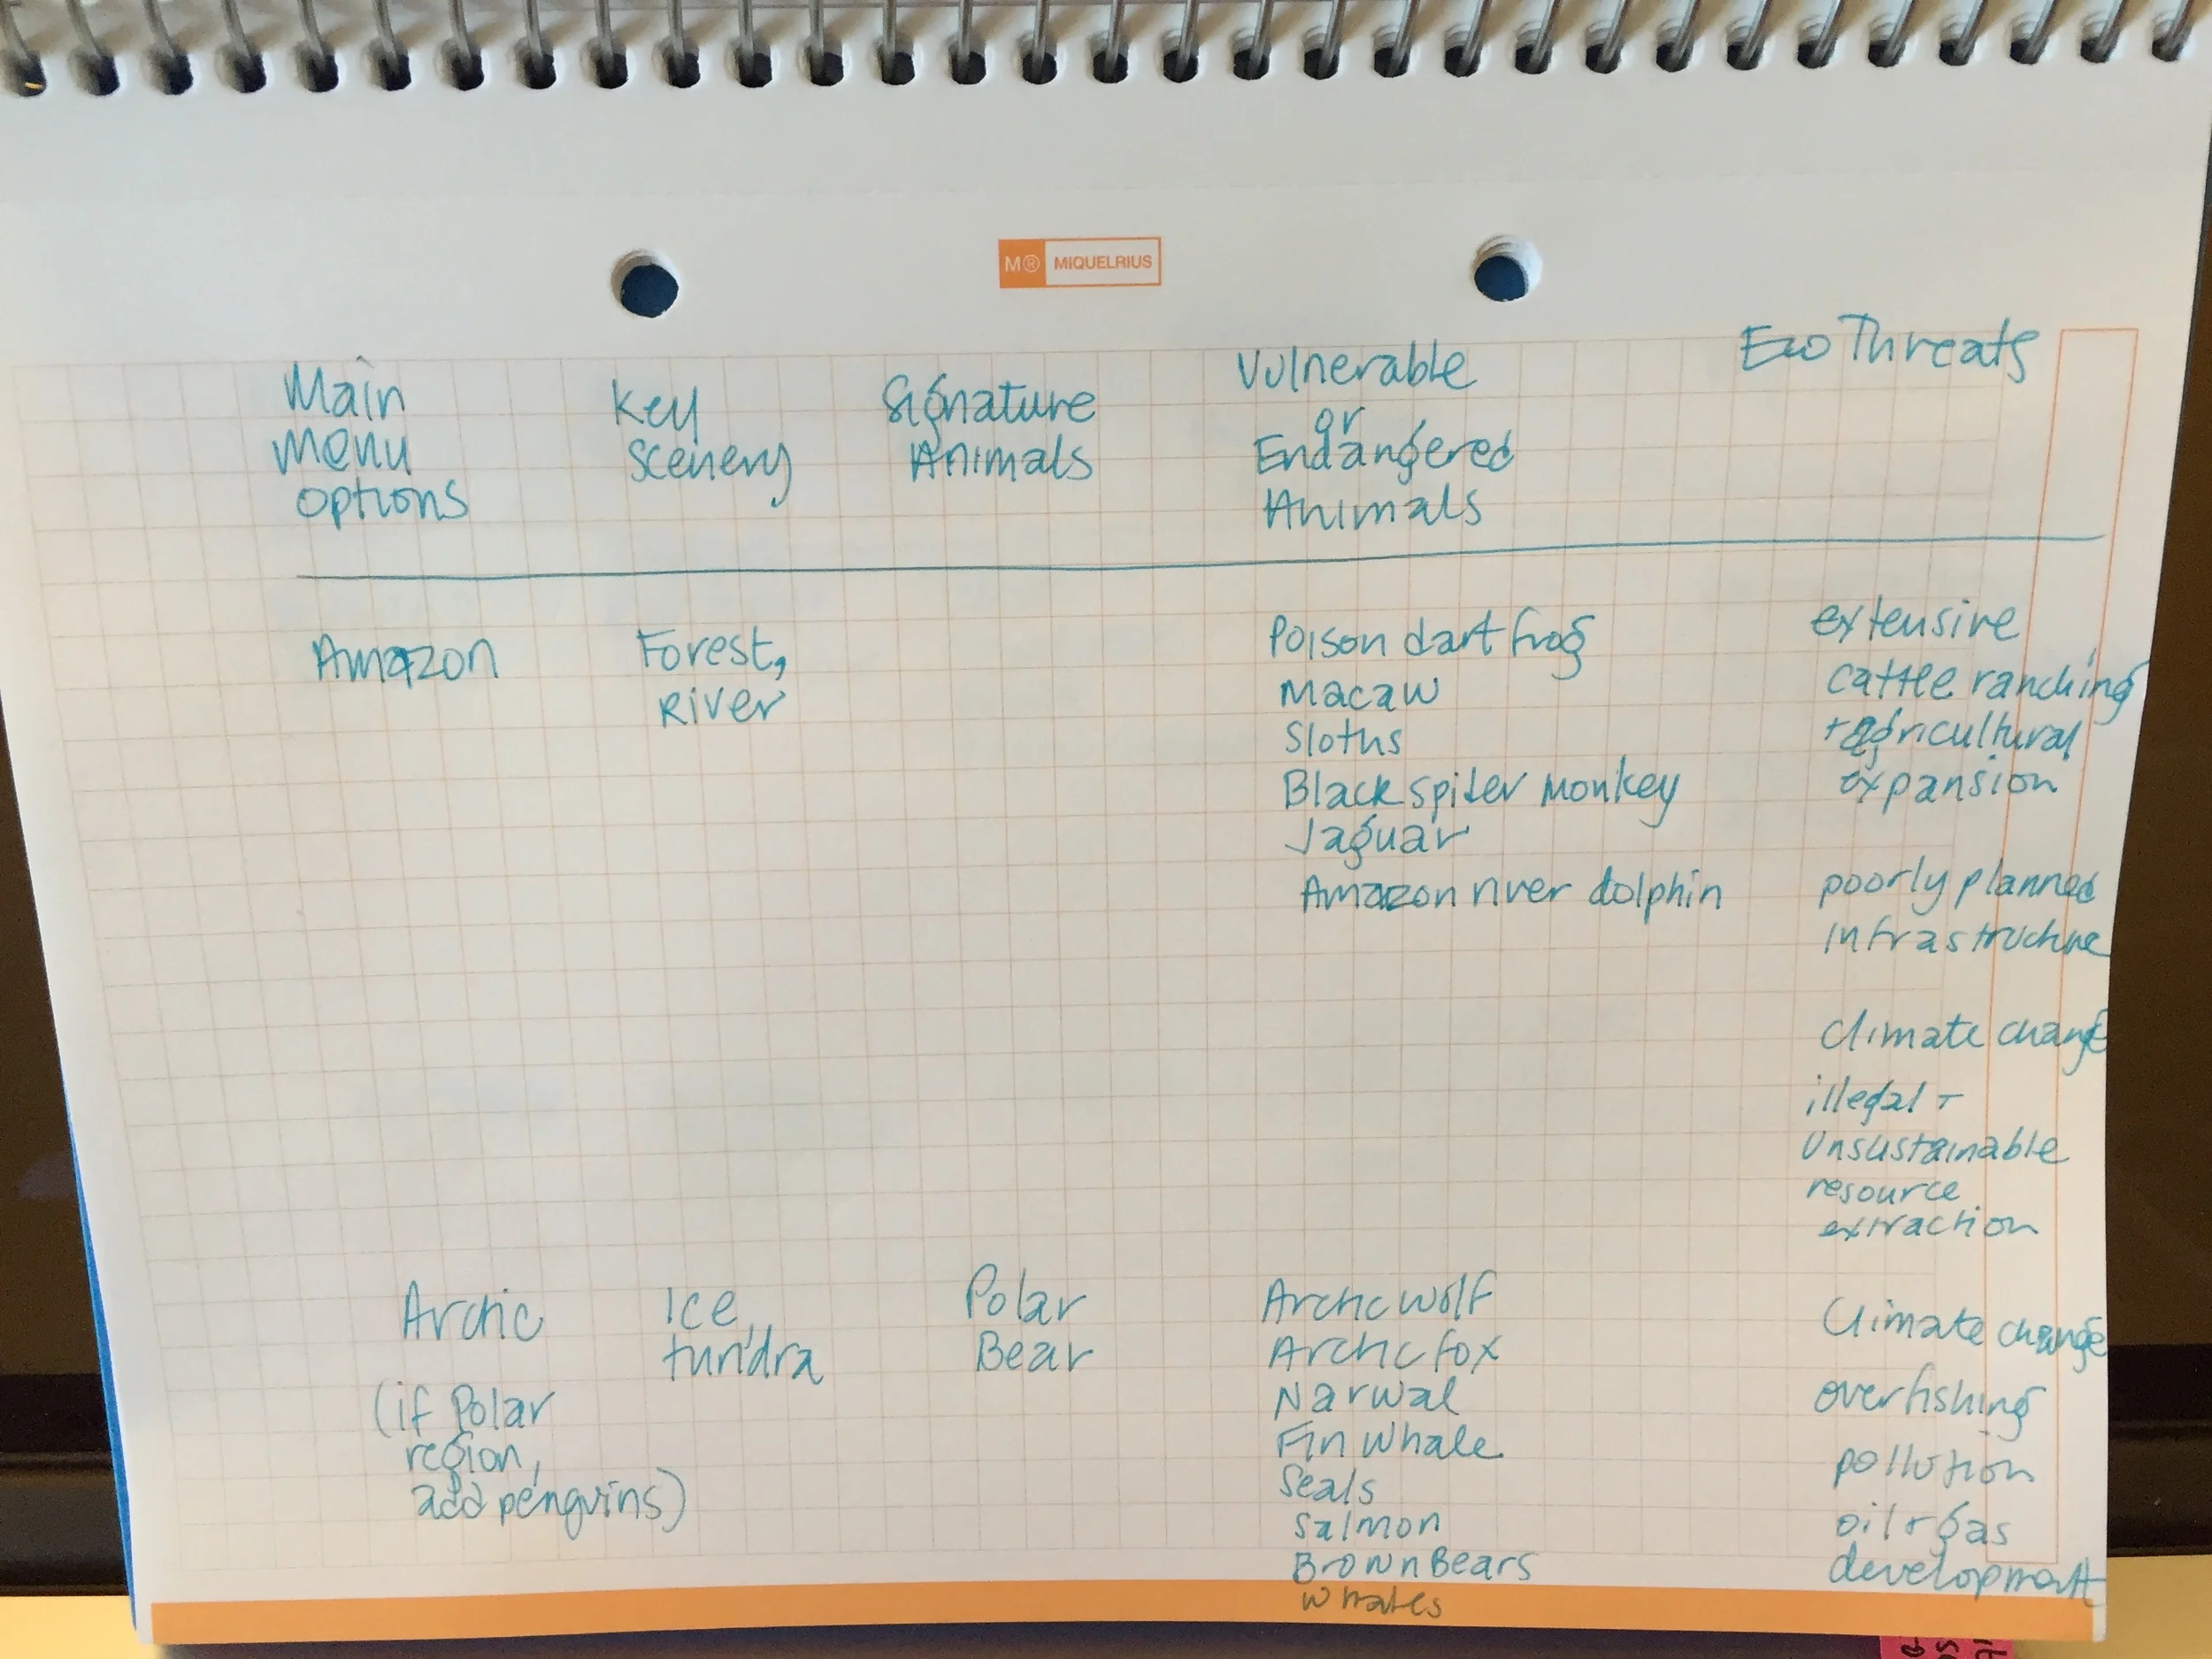 M® MIQUELRIUS
Main
Menu
options
Key
Scenery
Signature
Animals
Vulnerable
or
Endangered
Animals
Eco Threats
Amazon
Forest,
River
Poison dart frog
Macaw
Sloths
Black spider Monkey
Jaguar
Amazon river dolphin
extensive
cattle ranching
+ agricultural
expansion
poorly planned
infrastructure
Climate change
illegal +
Unsustainable
resource
extraction
Arctic
(if Polar
region,
add penguins)
Ice,
tundra
Polar
Bear
Arctic wolf
Arctic fox
Narwal
Fin Whale
Seals
Salmon
Brown Bears
Whales
Climate change
overfishing
pollution
oil + gas
development